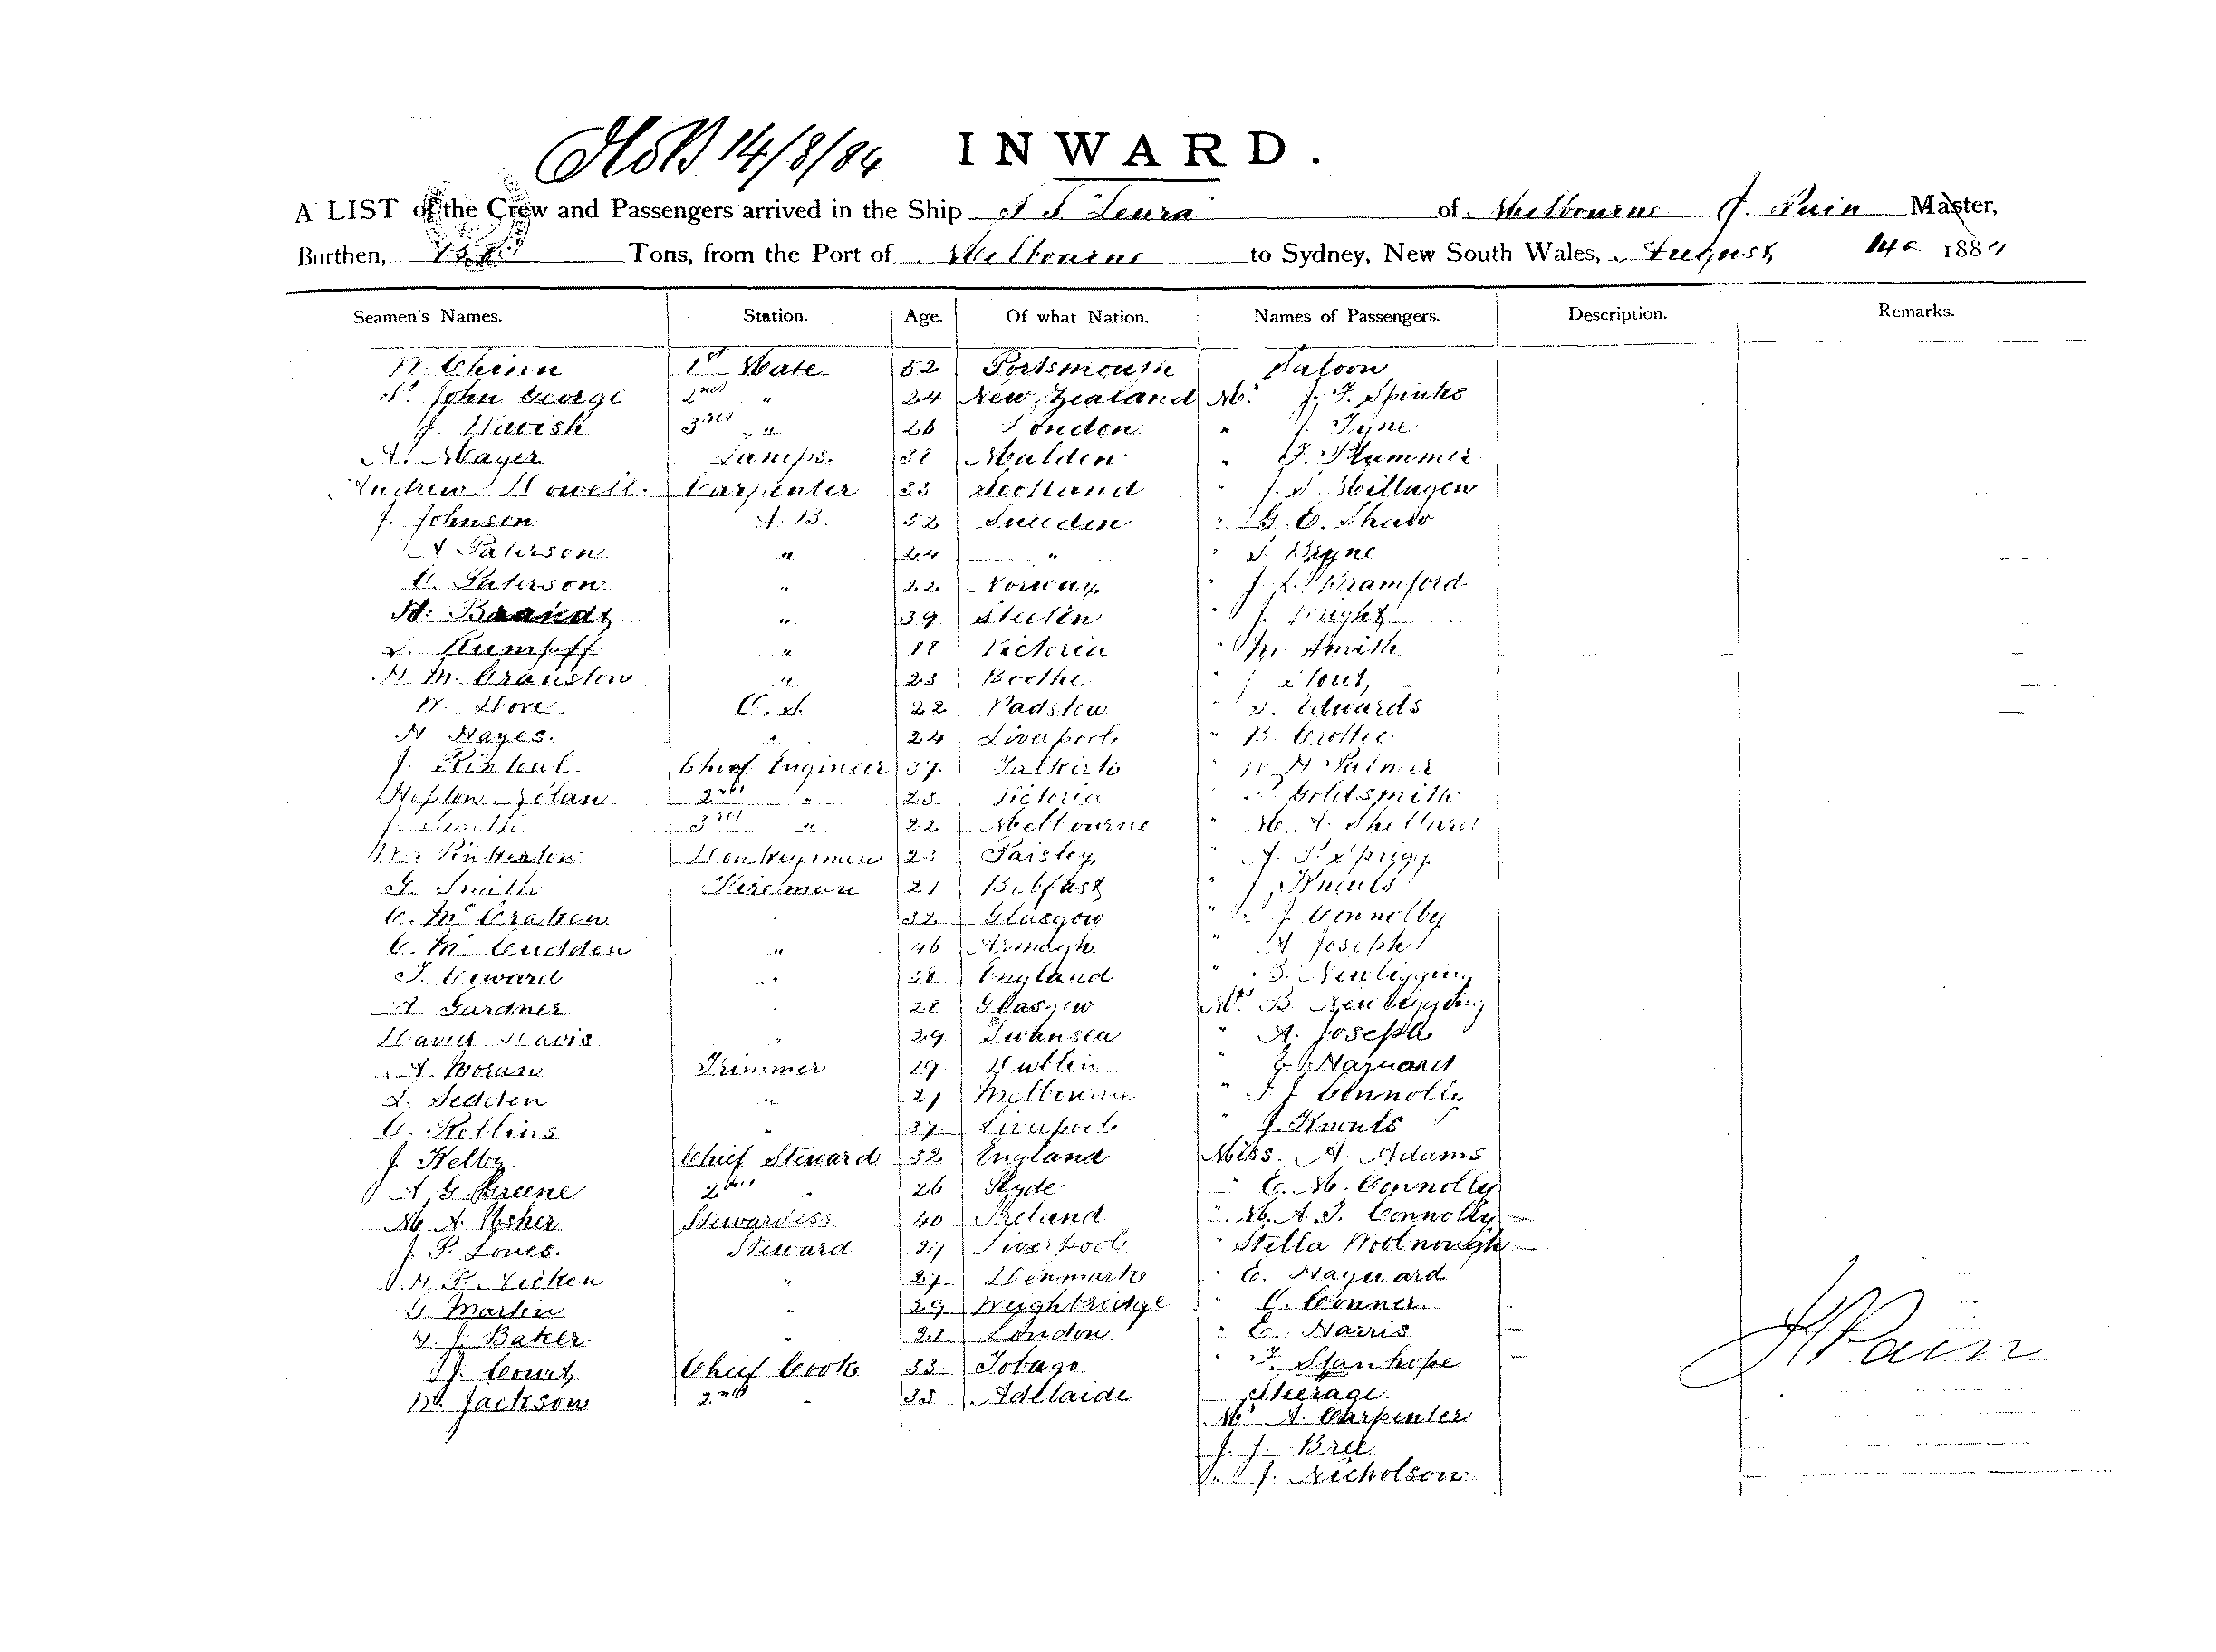 HOB 14/8/84 INWARD.
A LIST of the Crew and Passengers arrived in the Ship S S Leura of Melbourne J. Pain Master,
Burthen, Tons, from the Port of Melbourne to Sydney, New South Wales, August 14 1884
Seamen's Names. Station. Age. Of what Nation. Names of Passengers. Description. Remarks.
W. Chinn 1st Mate 52 Portsmouth Saloon
St. John George 2nd " 24 New Zealand Mr. J. F. Spinks
J. 3rd " 26 London " J. Tyne
A. Mayer Lamps. Malden " J. Plummer
Andrew Howell. Carpenter 33 Scotland " J. S.
J. Johnson A. B. 52 Sweden " G. E. Shaw
A Paterson " 24 " " S. Byrne
C. Paterson " 22 Norway " Bramford
H. Brandt " 39 Stettin " J. Wright
Rumpff " 18 Victoria " Wm. Smith
H. M. Cranston " 23 " Stout
W. Dove O. S. 22 Padstow " S. Edwards
H Hayes. " 24 Liverpool " B. Crottie
J. Chief Engineer 37. Falkirk " W. H. Palmer
2nd " 25 Victoria " Goldsmith
J. 3rd " 22 Melbourne " M. A. Shellard
Wm. Pinkerton Donkeyman Paisley " J. Sprigg
G. Smith Fireman 21 Belfast " J. Knowls
C. McCraken 32 Glasgow " J Connolly
C. McCudden " 46 Armagh " A Joseph
T. Coward " 38 England " Newbigging
A Gardner 28 Glasgow Mrs. B Newbigging
David Davis " 29 Swansea " A. Joseph
A. Moran Trimmer 19 Dublin " E. Hayward
S. Seddon " 21 Melbourne " J Connolly
C. Rollins " 37 Liverpool J. Knowls
J Kelby Chief Steward 32 England Miss. A. Adams
A G Greene 2nd " 26 Ryde C. M. Connolly
M A. Usher Stewardess 40 Ireland " M. A. J. Connolly
J. P. Jones. Steward 27 Liverpool " Stella Woolnough
H. P. " 27 Denmark " E. Hayward
G Martin " 29 Weighbridge " C. Conner.
J. Baker. " 21 London " E. Harris
J. Court Chief Cook 33. Tobago " F. Stanhope
W. Jackson 2nd " 33 Adelaide Steerage
Mr A. Carpenter
J. J. Bree
J. Nicholson
J Pain